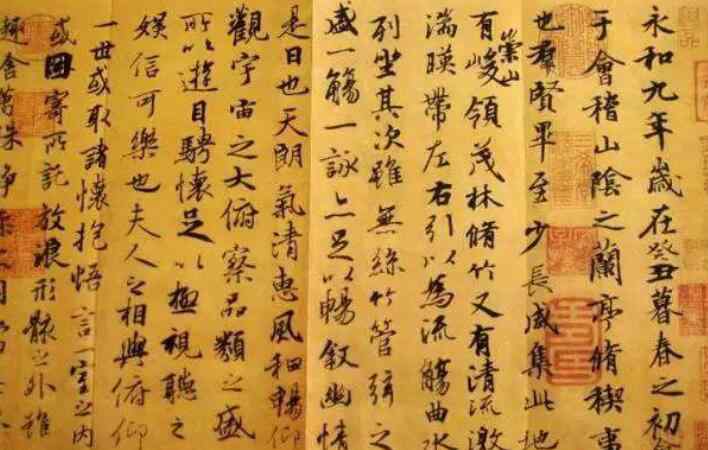 永和九年歲在癸丑暮春之初會
于會稽山陰之蘭亭脩稧事
也羣賢畢至少長咸集此地
崇山
有峻領茂林脩竹又有清流激
湍暎帶左右引以為流觴曲水
列坐其次雖無絲竹管弦之
盛一觴一詠亦足以暢敘幽情
是日也天朗氣清惠風和暢仰
觀宇宙之大俯察品類之盛
所以遊目騁懷足以極視聽之
娛信可樂也夫人之相與俯仰
一世或取諸懷抱悟言一室之內
或因寄所託放浪形骸之外雖
趣舍萬殊靜躁不同